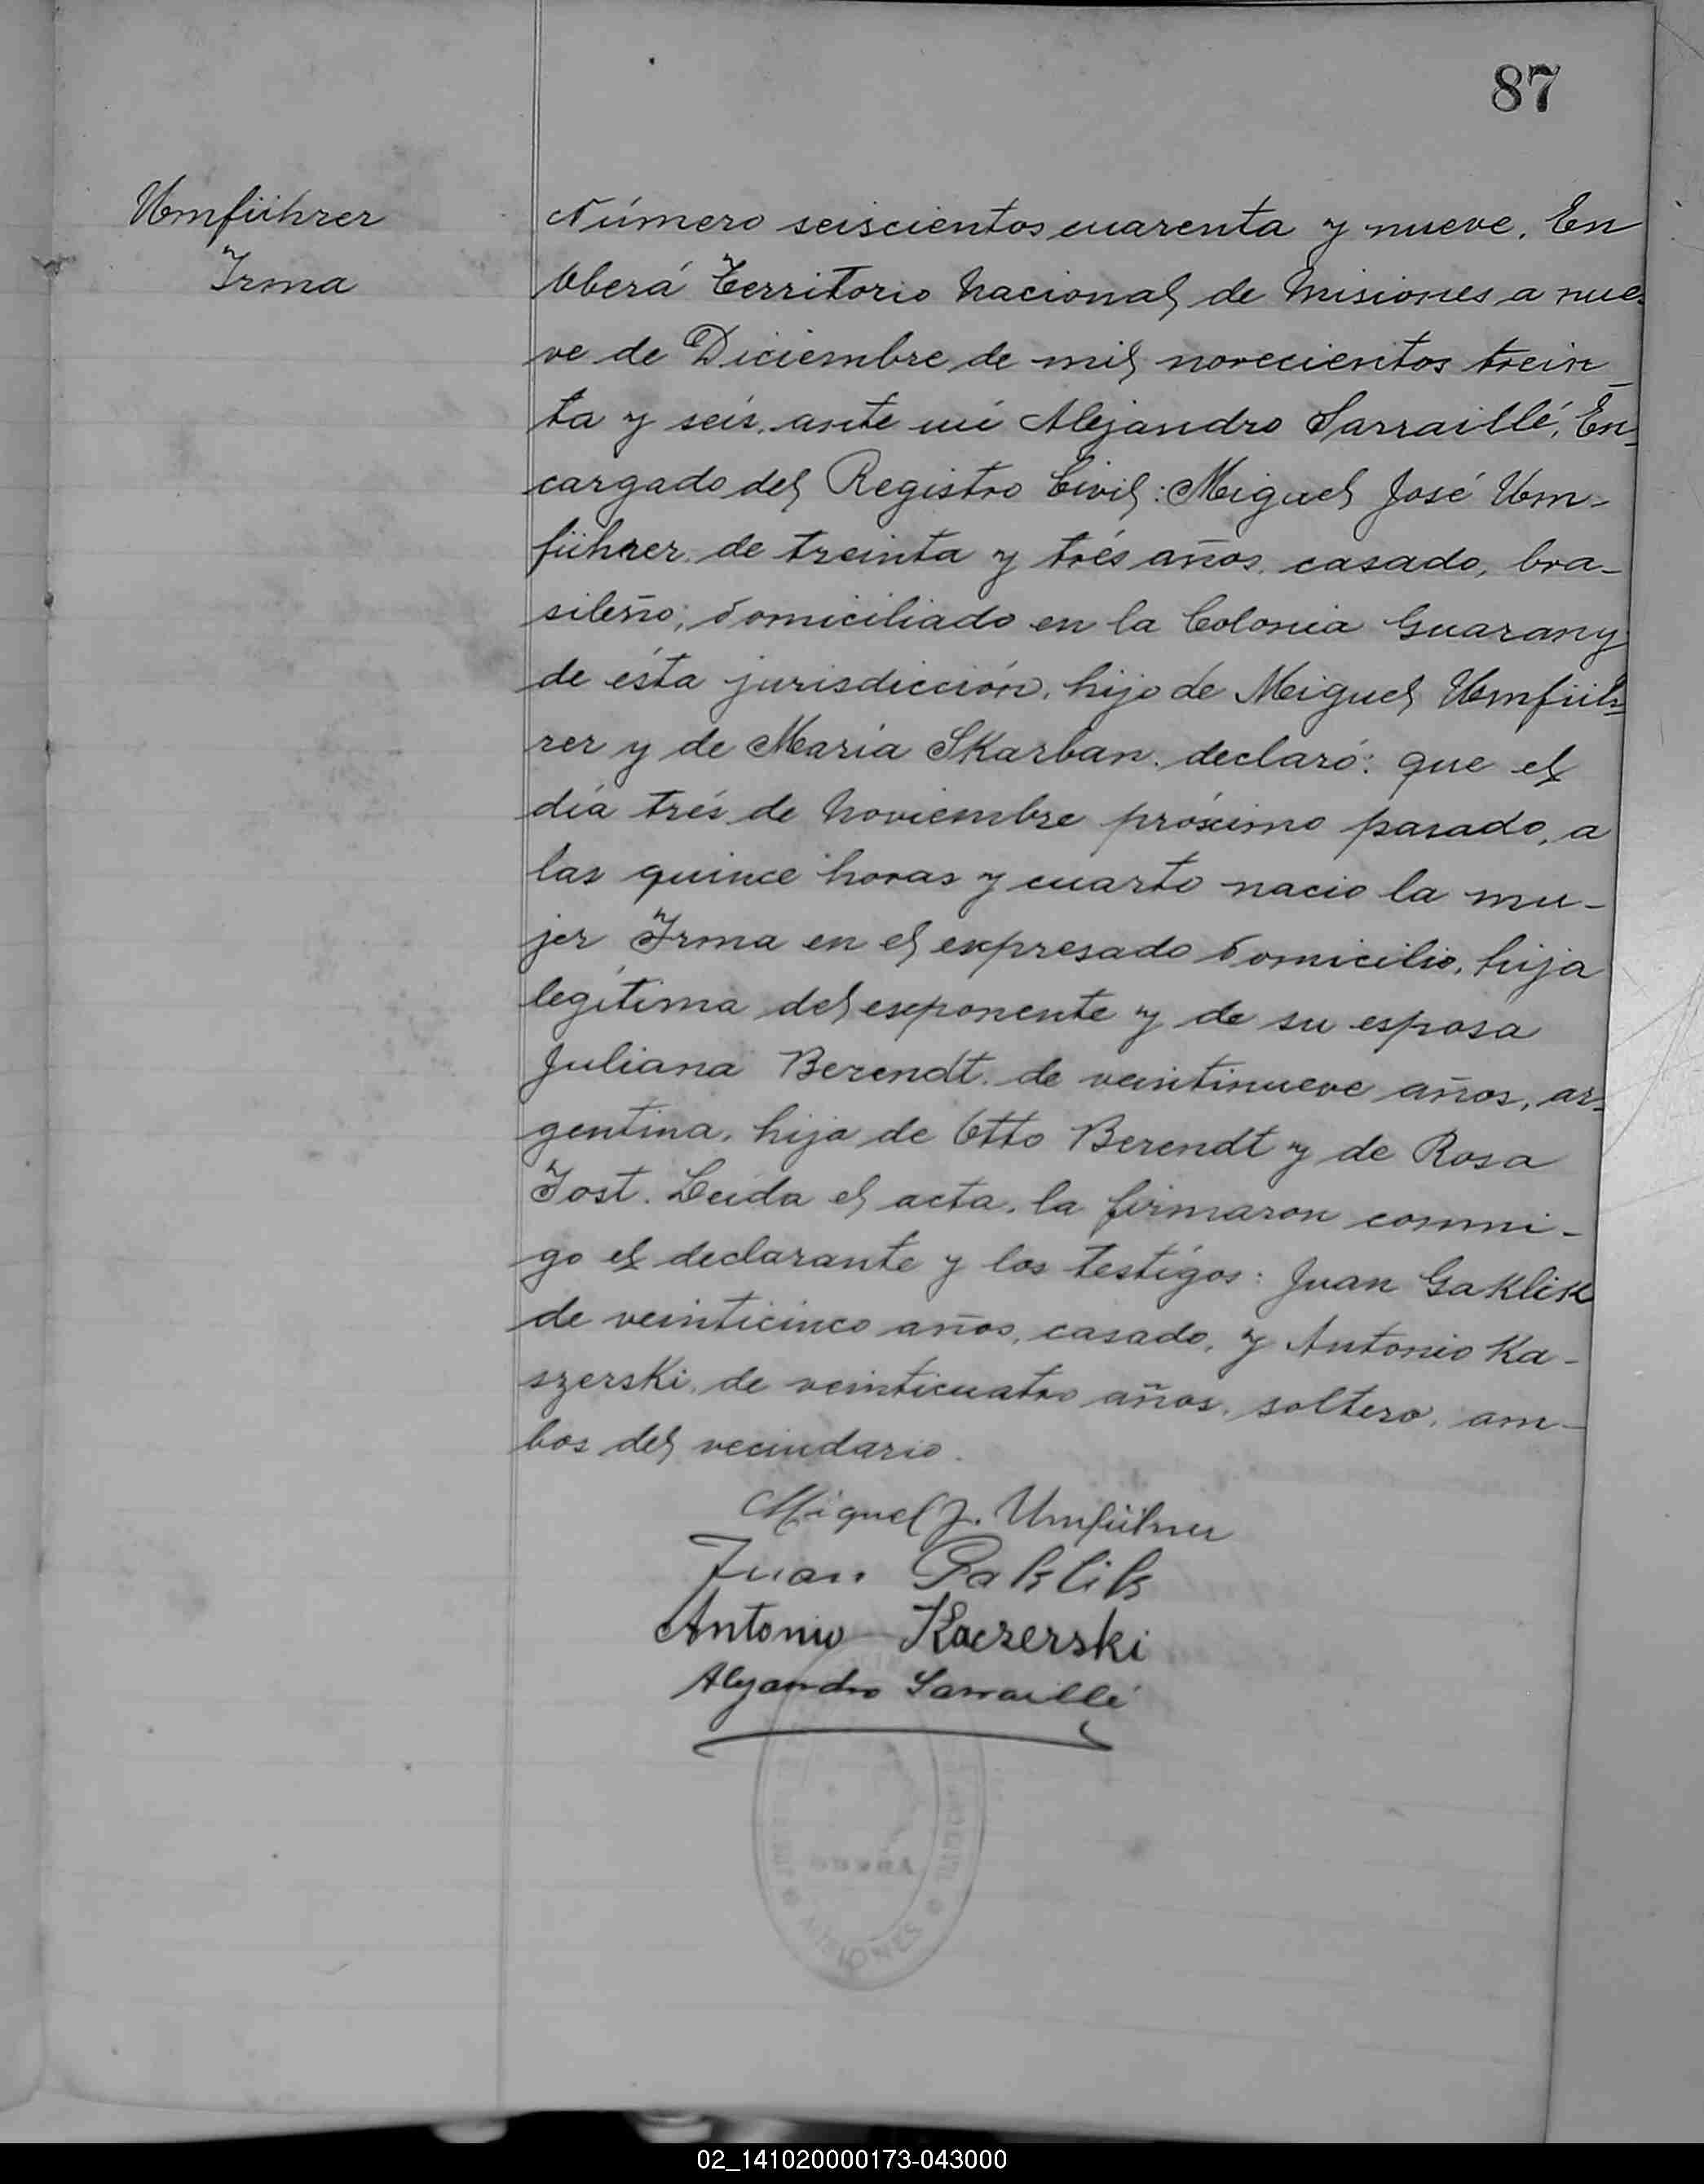 87
Umführer
Irma
Número seiscientos cuarenta y nueve. En
Oberá Territorio Nacional de Misiones a nue-
ve de Diciembre de mil novecientos trein_
ta y seis, ante mí Alejandro Sarraillé, En-
cargado del Registro Civil: Miguel José Um-
führer, de treinta y trés años, casado, bra-
sileño, domiciliado en la Colonia Guarany
de ésta jurisdicción, hijo de Miguel Umfüh-
rer y de María Skarban, declaró: que el
día trés de Noviembre próximo pasado, a
las quince horas y cuarto nacio la mu-
jer Irma en el expresado domicilio, hija
legítima del exponente y de su esposa
Juliana Berendt, de veintinueve años, ar-
gentina, hija de Otto Berendt y de Rosa
Jost. Leída el acta, la firmaron conmi-
go el declarante y los testigos: Juan Gaklik
de veinticinco años, casado, y Antonio Ka-
szerski, de veinticuatro años, soltero, am-
bos del vecindario.
Miguel J. Umführer
Juan Gaklik
Antonio Kaczerski
Alejandro Sarraillé
MISIONES
02_141020000173-043000